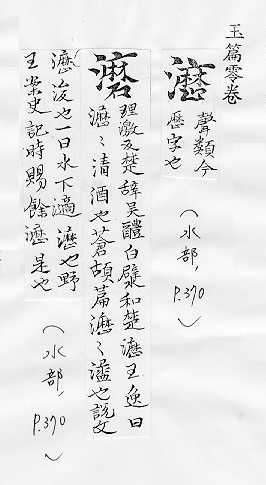 玉篇零卷
瀝
聲類今
歷字也
(水部, P.370)
理激反楚辭吳醴白糵和楚瀝王逸曰
瀝〻清酒也蒼頡篇瀝〻盪也說文
瀝浚也一曰水下適瀝也野
王案史記時賜餘瀝是也
(水部, P.370)